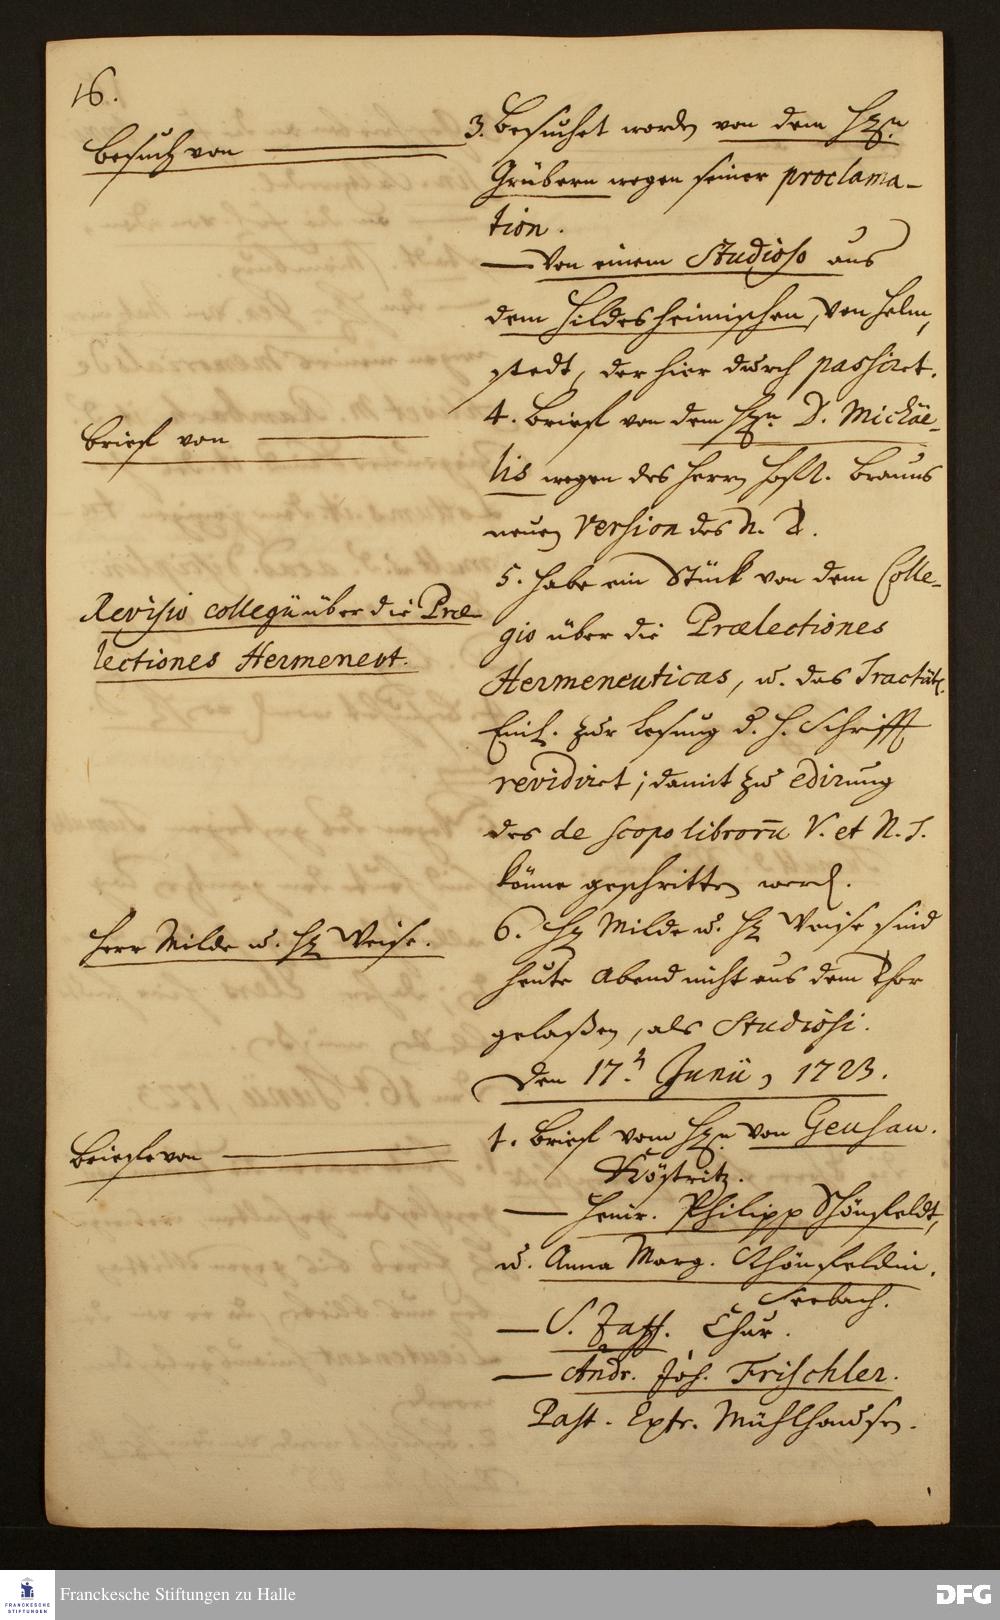 16.
Besuch von
3. Besuchet worden von dem Hrn
Grübern wegen seiner proclama-
tion.
— Von einem Studioso aus
dem Hildesheimischen, von Helm,
stedt, der hier durch passiret.
Brief von
4. Brief von dem Hrn D. Michäe-
lis wegen des Herrn Hofr. Brauns
neuen Version des N. T.
Revisio collegii über die Præ-
lectiones Hermeneut.
5. Habe ein Stück von dem Colle-
gio über die Prælectiones
Hermeneuticas, u. das Tractätl.
Einl. zur Lesung d. H. Schrifft
revidiret; damit zu edirung
des de scopo librorū V. et N. T.
könne geschritten werd.
Herr Milde u. Hr Weise.
6. Hr Milde u. Hr Weise sind
heute Abend nicht aus dem Thor
gelaßen, als Studiosi.
den 17. Junii, 1723.
Briefe von
1. Brief vom Hrn von Geusau.
Köstritz.
— Henr. Philipp Schönfeldt,
u. Anna Marg. Schönfeldin.
Seebach.
— S. Zaff. Chur.
— Andr. Joh. Frischler.
Past. Extr. Mühlhausen.
Franckesche Stiftungen zu Halle
FRANCKESCHE
STIFTUNGEN
DFG